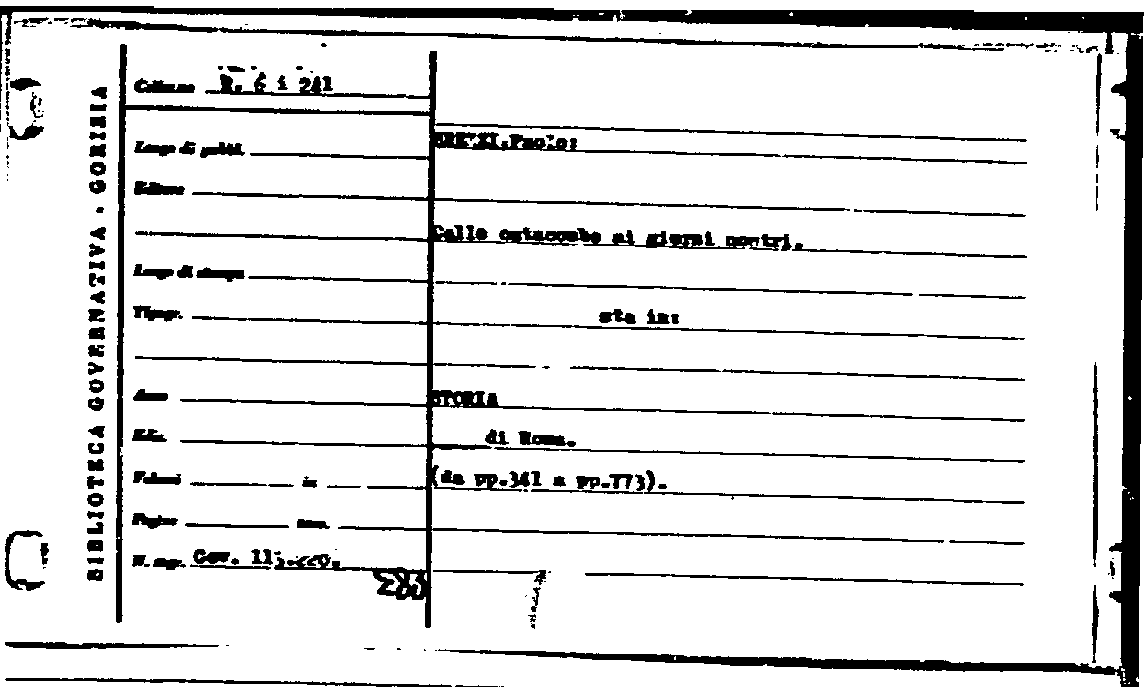 BIBLIOTECA GOVERNATIVA . GORIZIA
Collocaz. R. 6 i 241
Luogo di pubbl.
BREZZI,Paolo:
Editore
Dalle catacombe ai giorni nostri.
Luogo di stampa
Tipogr.
sta in:
Anno
STORIA
Ediz.
di Roma.
Volumi in
(da pp.341 a pp.773).
Pagine
N. ingr. Gov.